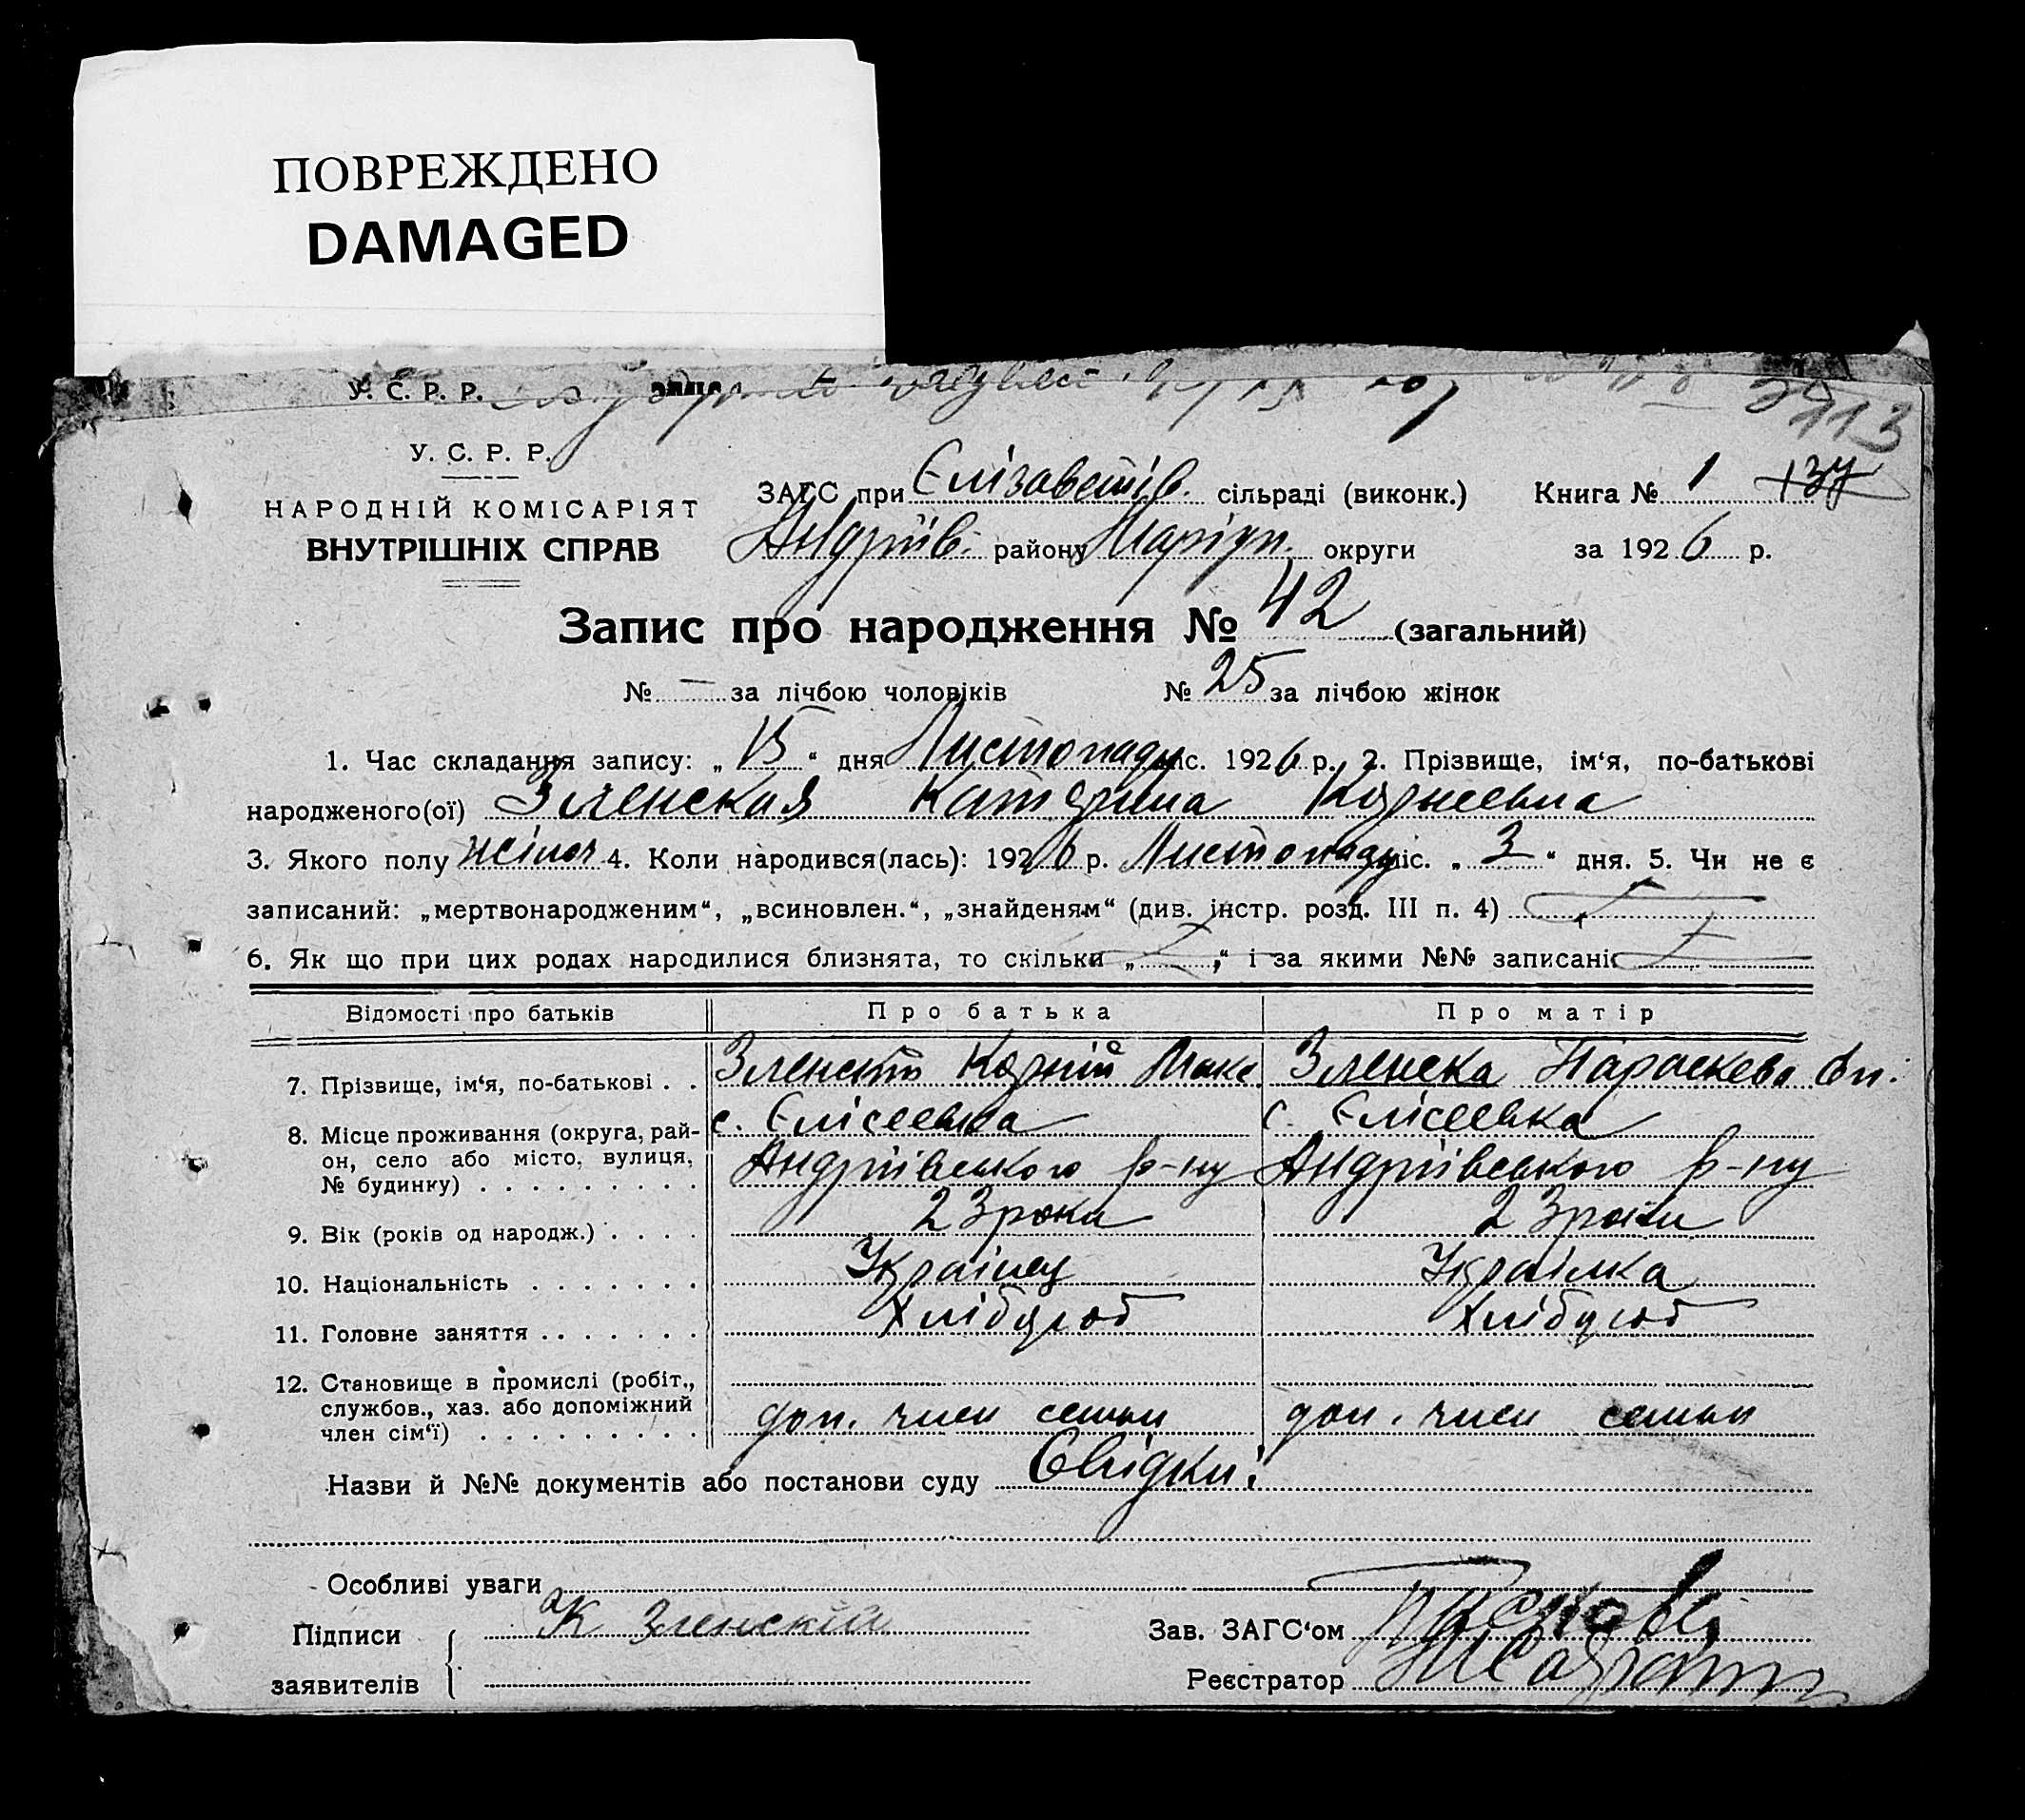 ПОВРЕЖДЕНО
DAMAGED
У. С. Р. Р.
113
У. С. Р. Р.
НАРОДНІЙ КОМІСАРІЯТ
ВНУТРІШНІХ СПРАВ
ЗАГС при Єлізаветів. сільраді (виконк.) Книга № 1 137
Андріїв. району Маріуп. округи за 1926 р.
Запис про народження № 42 (загальний)
№ — за лічбою чоловіків № 25 за лічбою жінок
1. Час складання запису: „ 15 “ дня Листопаду міс. 1926 р. 2. Прізвище, ім‘я, по-батькові
народженого(ої) Зленская Катерина Корнеевна
3. Якого полу жіноч 4. Коли народився(лась): 1926 р. Листопаду міс. „ 3 “ дня. 5. Чи не є
записаний: „мертвонародженим“, „всиновлен.“, „знайденям“ (див. інстр. розд. III п. 4)
6. Як що при цих родах народилися близнята, то скільки „ “ і за якими №№ записані
Відомості про батьків Про батька Про матір
7. Прізвище, ім‘я, по-батькові . . Зленский Корній Макс. Зленска Параскева
8. Місце проживання (округа, рай- с. Єлісеевка с. Єлісеевка
он, село або місто, вулиця, Андріівського р-ну Андріівського р-ну
№ будинку) . . . . . . . . .
9. Вік (років од народж.) . . . . 23 роки 23 роки
10. Національність . . . . . . . Украінец Украінка
11. Головне заняття . . . . . . . Хлібороб Хлібороб
12. Становище в промислі (робіт.,
службов., хаз. або допоміжний доп. член семьи доп. член семьи
член сім‘ї) . . . . . . . . .
Назви й №№ документів або постанови суду Свідки:
Особливі уваги
Підписи К Зленский Зав. ЗАГС‘ом
заявителів Реєстратор